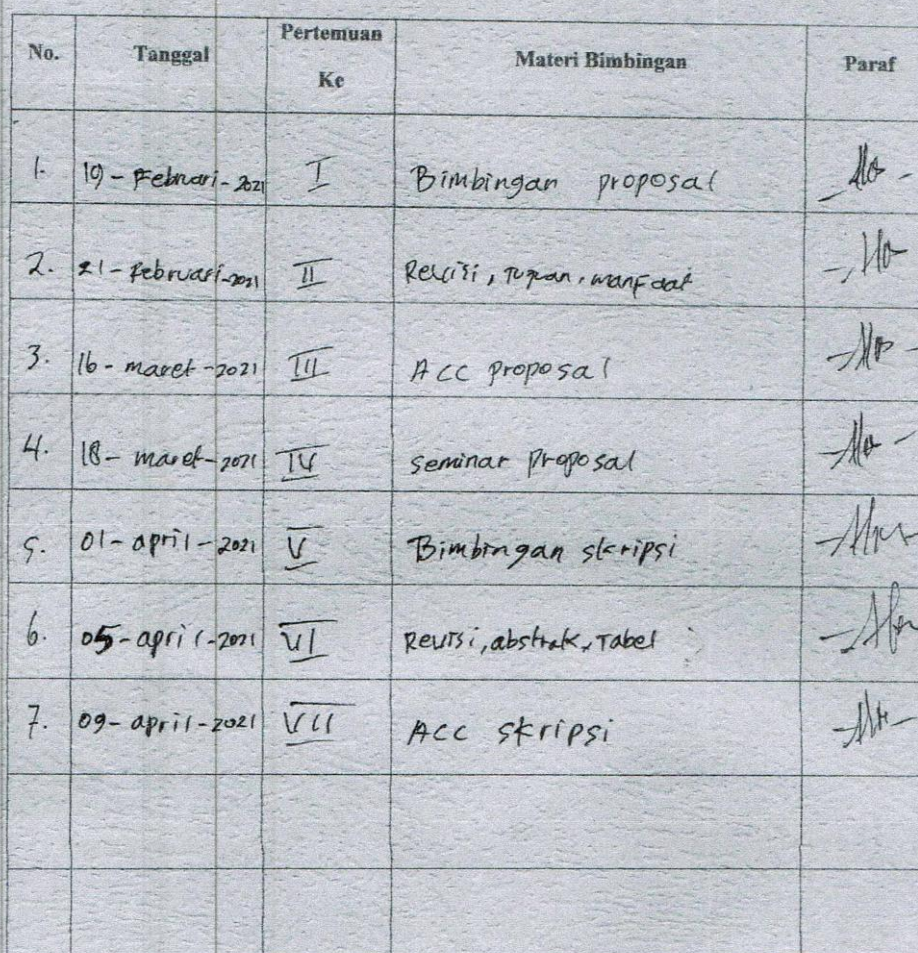 No. Tanggal Pertemuan Ke Materi Bimbingan Paraf
1. 19 - Februari - 2021 I Bimbingan proposal
2. 21 - Februari - 2021 II Revisi, Tujuan, manfaat
3. 16 - maret - 2021 III Acc proposal
4. 18 - maret - 2021 IV seminar proposal
5. 01 - april - 2021 V Bimbingan skripsi
6. 05 - april - 2021 VI Revisi, abstrak, Tabel
7. 09 - april - 2021 VII Acc skripsi